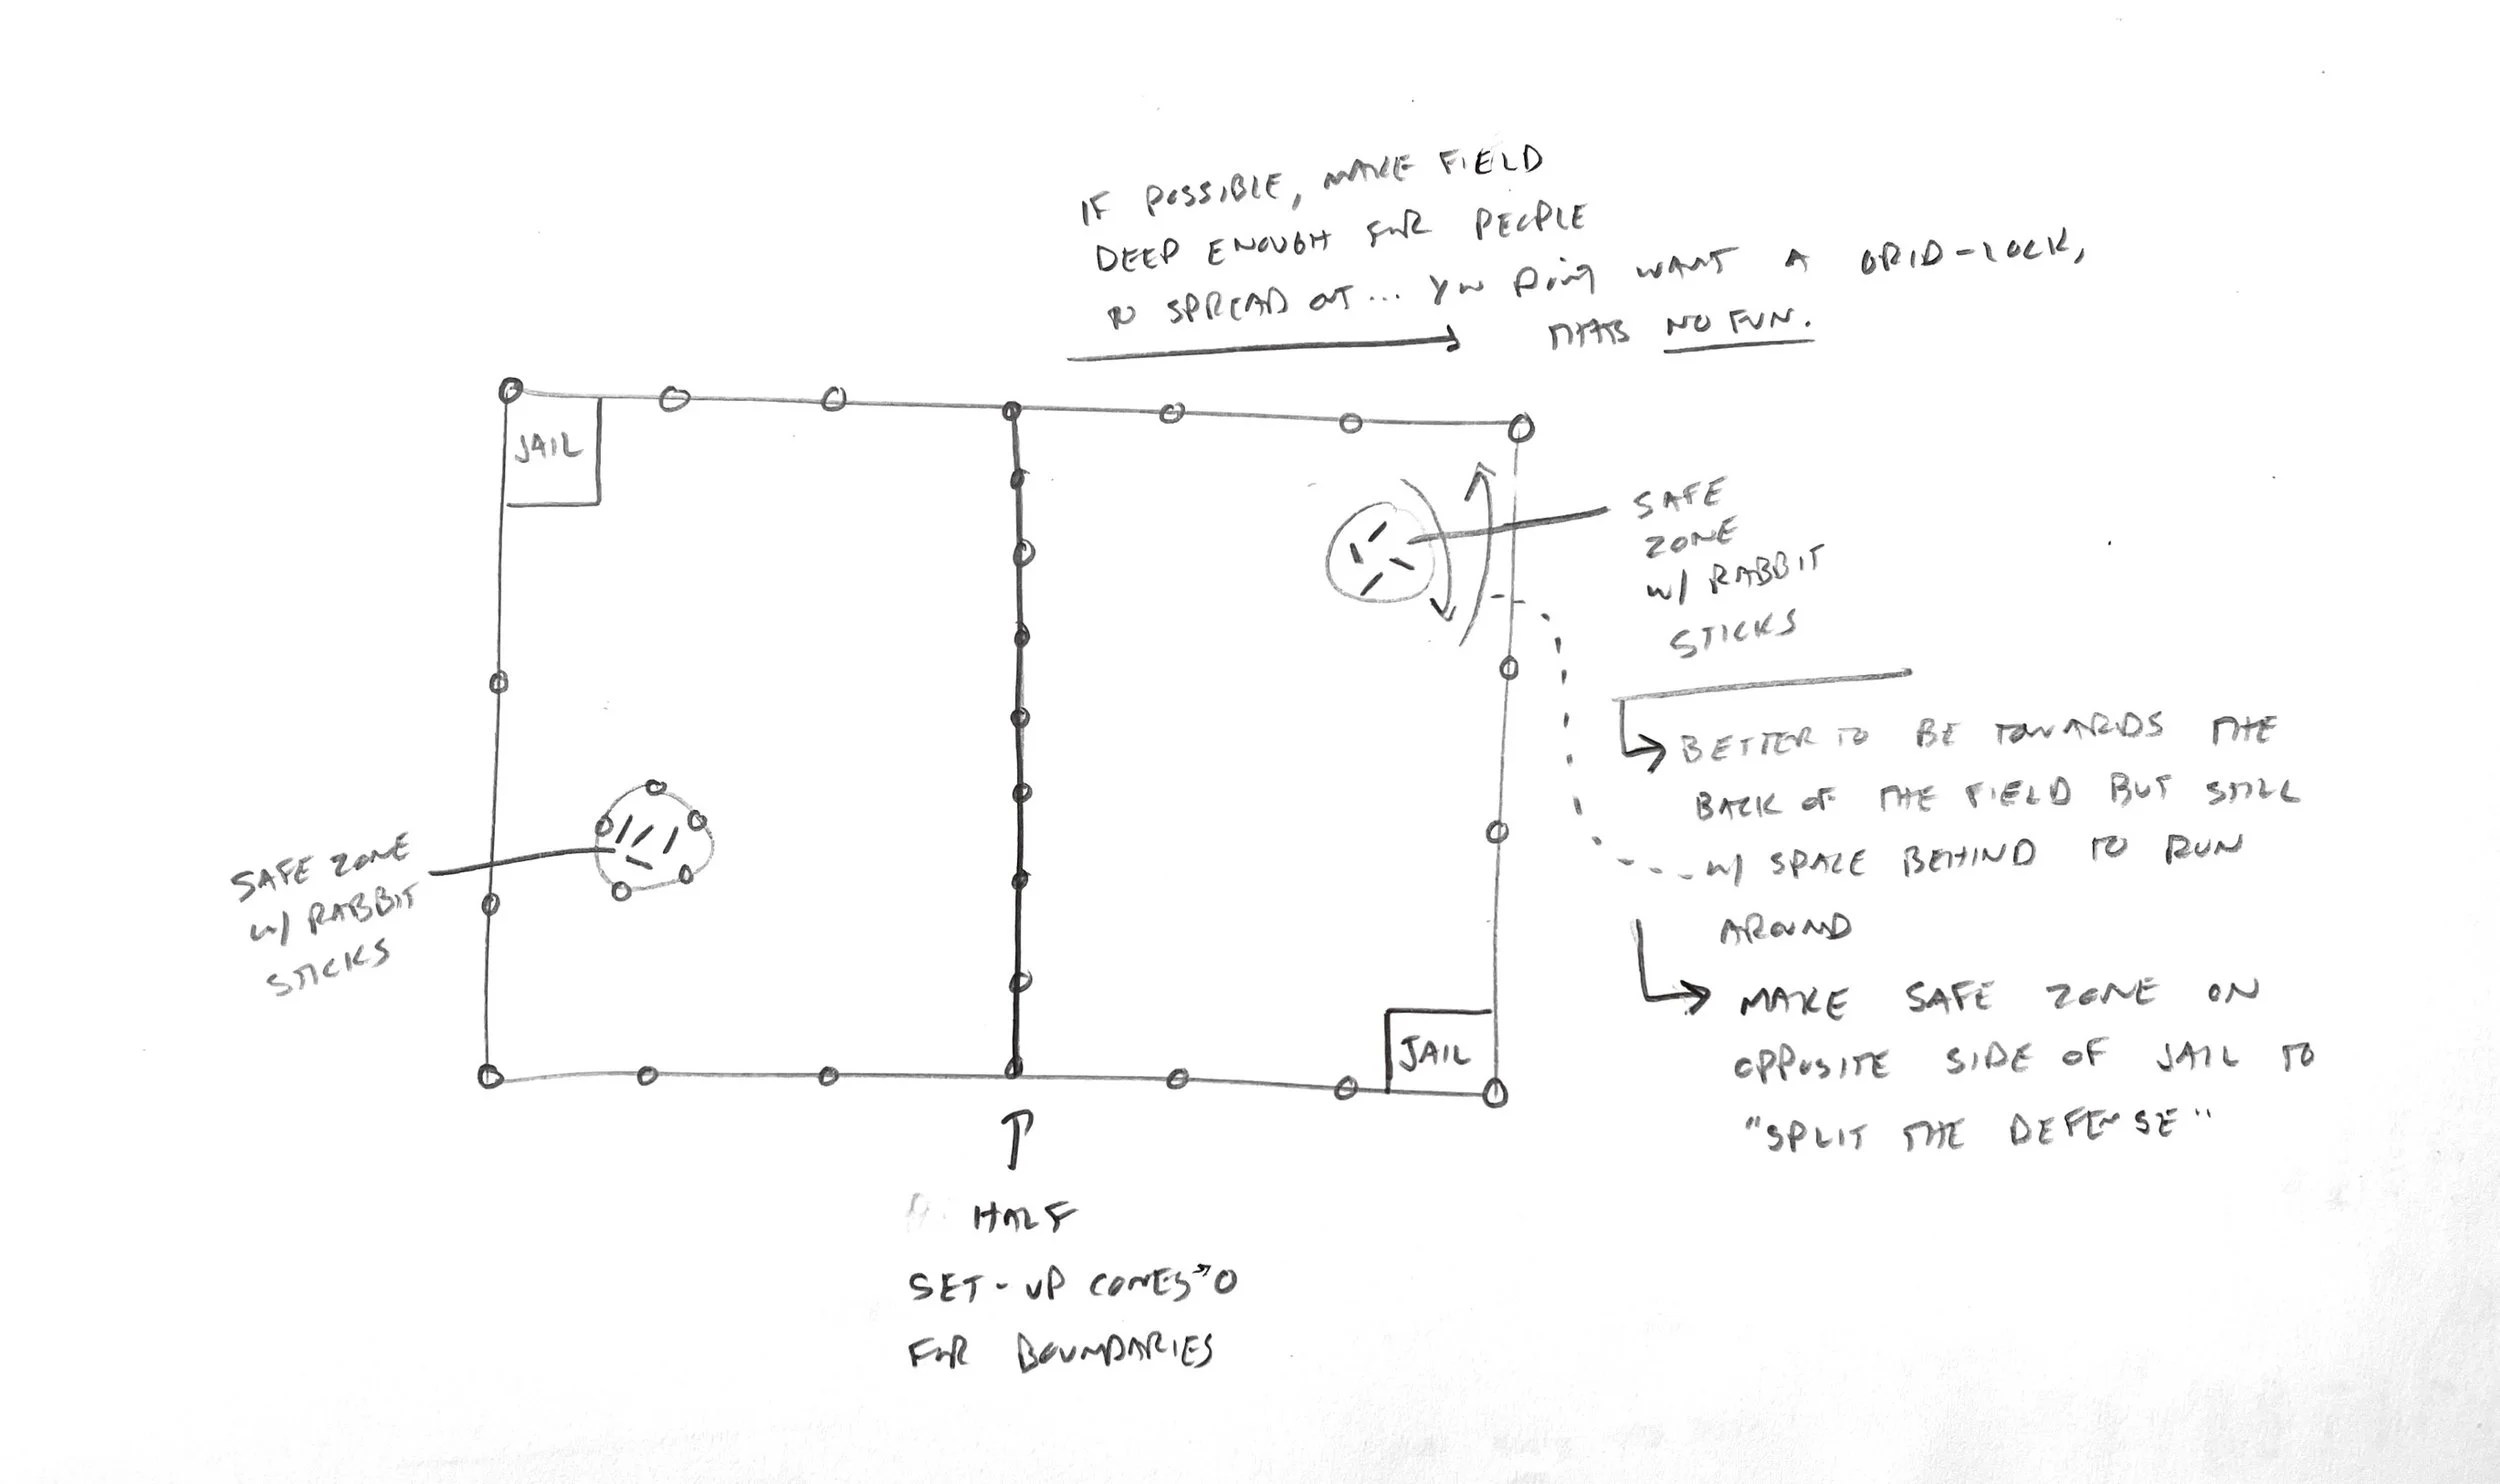 IF POSSIBLE, MAKE FIELD
DEEP ENOUGH FOR PEOPLE
TO SPREAD OUT... YOU DON'T WANT A GRID-LOCK,
THATS NO FUN.
JAIL
SAFE
ZONE
W/ RABBIT
STICKS
BETTER TO BE TOWARDS THE
BACK OF THE FIELD BUT STILL
W/ SPACE BEHIND TO RUN
AROUND
SAFE ZONE
W/ RABBIT
STICKS
MAKE SAFE ZONE ON
OPPOSITE SIDE OF JAIL TO
"SPLIT THE DEFENSE"
JAIL
HALF
SET-UP CONES → O
FOR BOUNDARIES